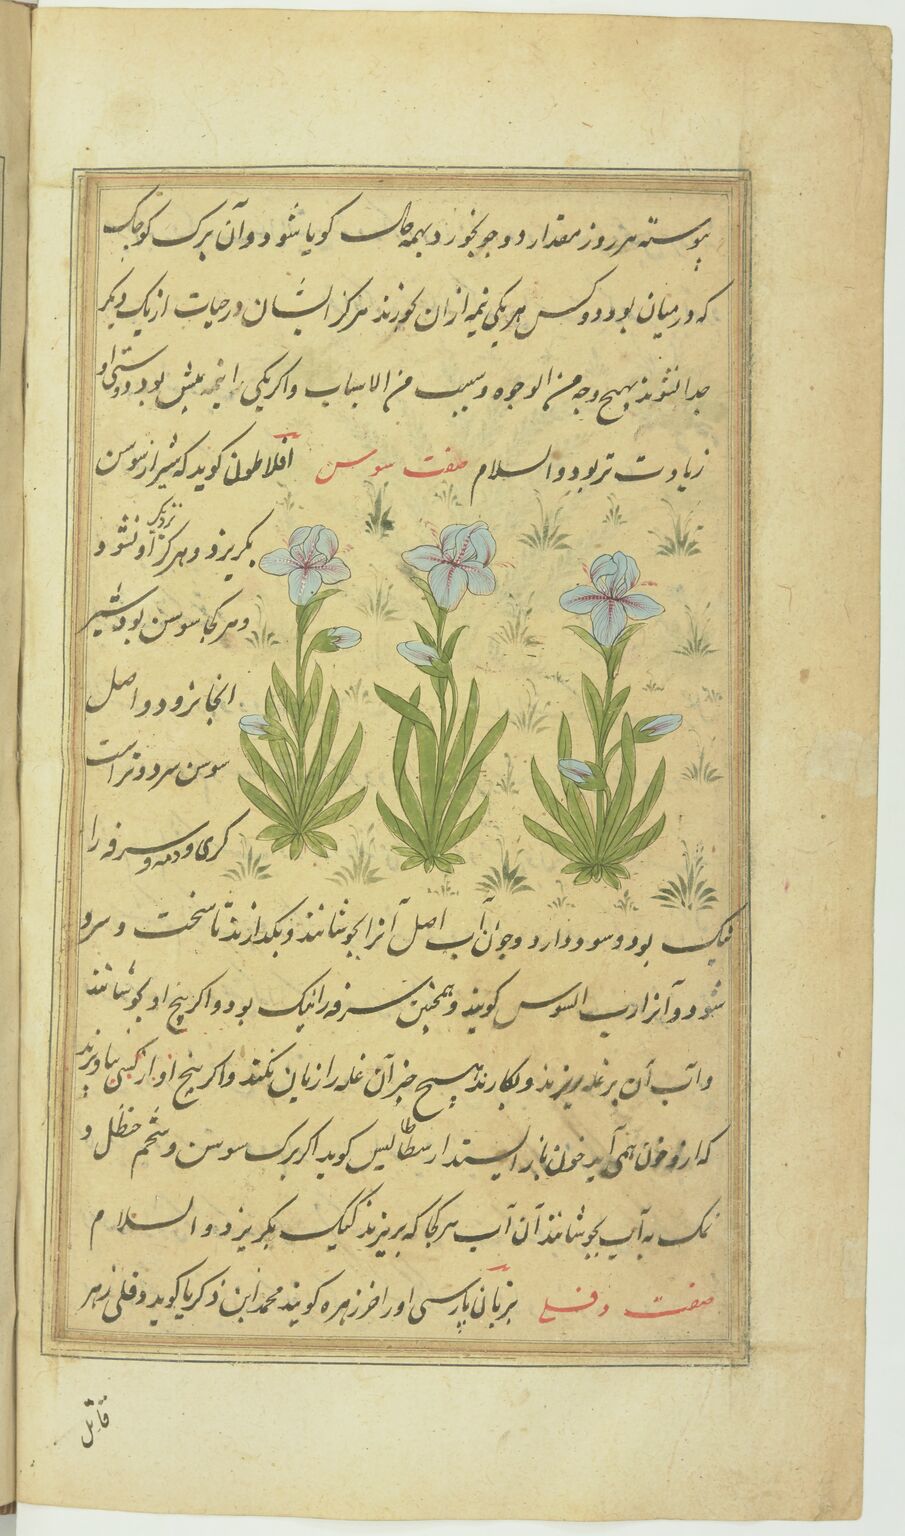 پیوسته هر روز مقدار دو جو بخورد بهمه حال کویا شود و آن برک کوچک
که در میان بود دو کس هر یکی نیمه ازان بخورند هرکز ایشان در حیات از یک دیکر
جدا نشوند بهیچ وجه من الوجوه و سبب من الاسباب و اکر یکی را نیمه بیش بود دوستی او
زیادت تر بود والسلام صفت سوسن افلاطون کوید که شیر از سوسن
بکریزد و هرکز نزدیک او نشود
و هر کجا سوسن بود شیر
انجا نرود و اصل
سوسن سرد و تر است
کرمی و دمه و سرفه را
نیک بود و سود دارد و چون آب اصل آنرا بجوشانند و بکدارند تا سخت و سرد
شود و آنرا رب السوس کویند و همچنین سرفه را نیک بود و اکر بیخ او بجوشانند
و آب آن بر غله بریزند و بکارند هیچ چیز آن غله را زیان نکند و اکر بیخ او از کسی بیاویزند
که ازو خون همی آید خون باز ایستد ارسطالیس کوید اکر برک سوسن و شحم حنظل و
نمک به آب بجوشانند آن آب هر کجا که بریزند کیک بکریزد والسلام
صفت دفلی بزبان پارسی اورا خرزهره کویند محمد ابن زکریا کوید دفلی زهر
قاتل